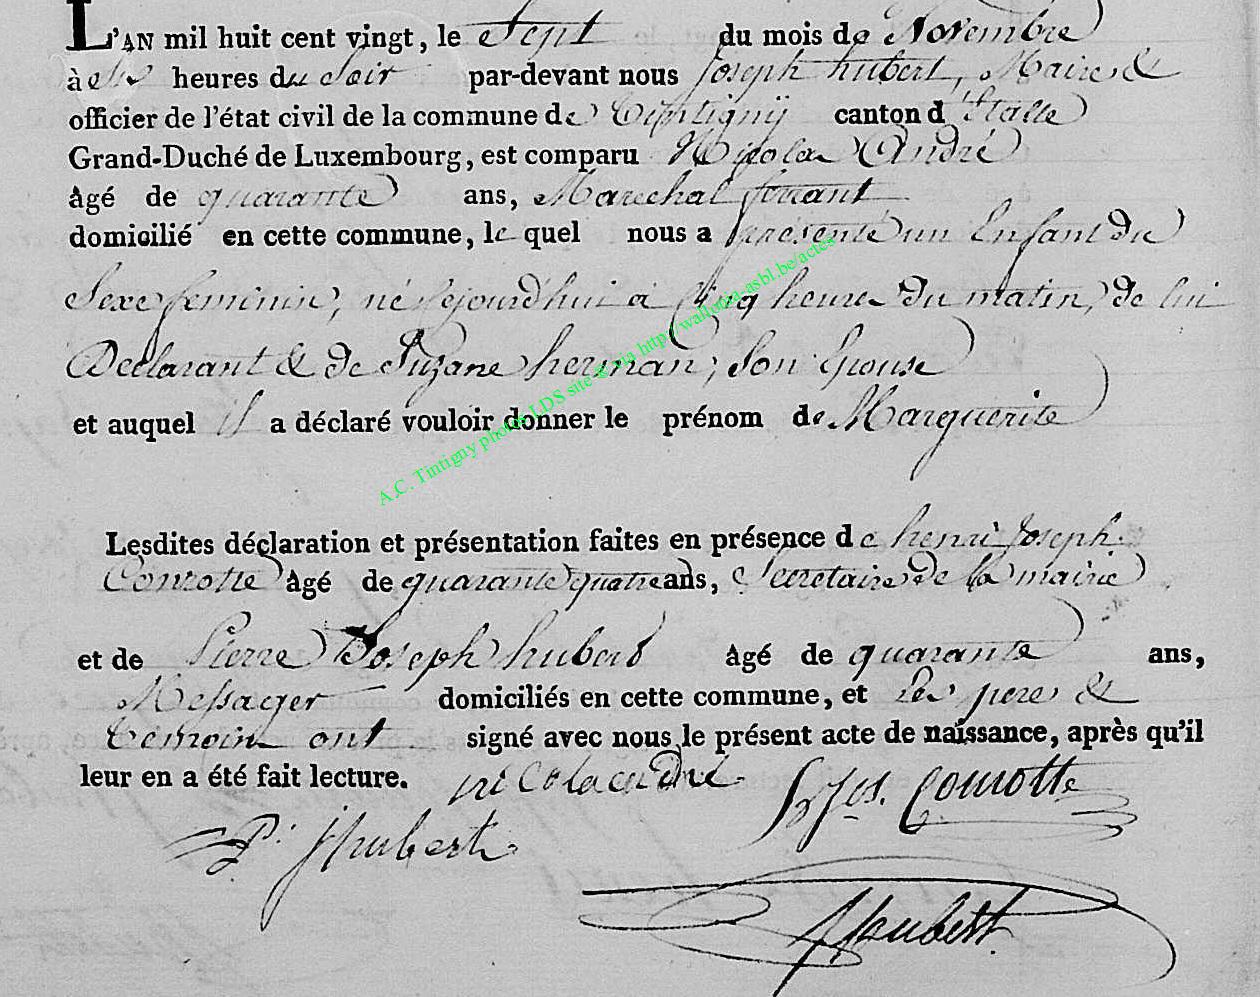 L'AN mil huit cent vingt, le Sept du mois de Novembre
à six heures du Soir par-devant nous Joseph hubert, Maire &
officier de l'état civil de la commune de Tintigny canton d'Etalle
Grand-Duché de Luxembourg, est comparu Nicolas André
âgé de quarante ans, Marechal ferrant
domicilié en cette commune, le quel nous a présenté un Enfant du
Sexe feminin, né cejourd'hui à Cinq heures du matin, de lui
Declarant & de Suzane herman, Son Epouse
et auquel il a déclaré vouloir donner le prénom de Marguerite
A.C. Tintigny photos LDS site & via http://wallonia-asbl.be/actes
Lesdites déclaration et présentation faites en présence de henri Joseph
Conrotte âgé de quarante quatre ans, Secretaire de la mairie
et de Pierre Joseph hubert âgé de quarante ans,
Messager domiciliés en cette commune, et Les pere &
temoin ont signé avec nous le présent acte de naissance, après qu'il
leur en a été fait lecture. nicola andré Conrotte
P. J hubert
J hubert